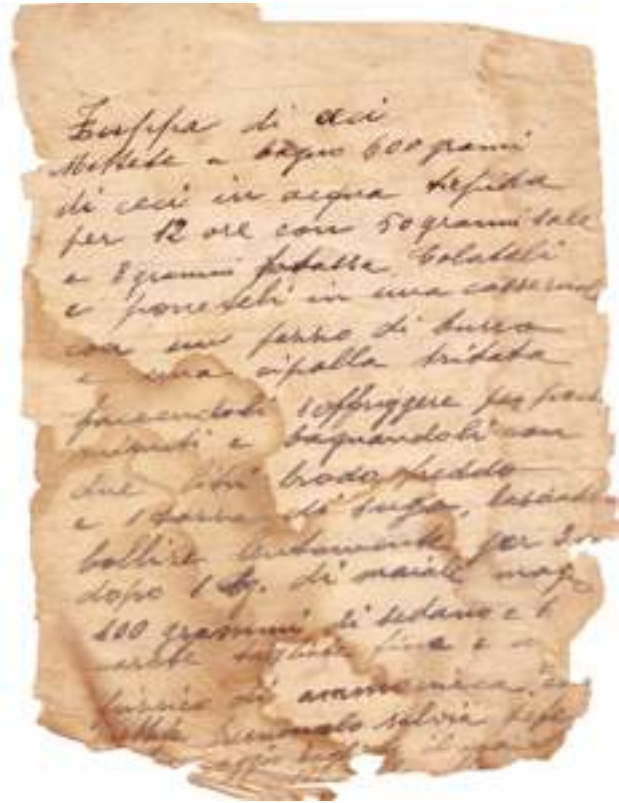 Zuppa di ceci
Mettete a bagno 600 grammi
di ceci in acqua tepida
per 12 ore con 50 grammi sale
e 8 grammi potassa. Colateli
e poneteli in una casseruola
con un pezzo di burro
e una cipolla tritata
facendoli soffriggere per pochi
minuti e bagnandoli con
due litri brodo freddo
e 1 di sugo, lasciate
bollire lentamente per 2
dopo 1 kg. di maiale magro
100 grammi di sedano e 6
fine e
di ammoniaca
salvia
il